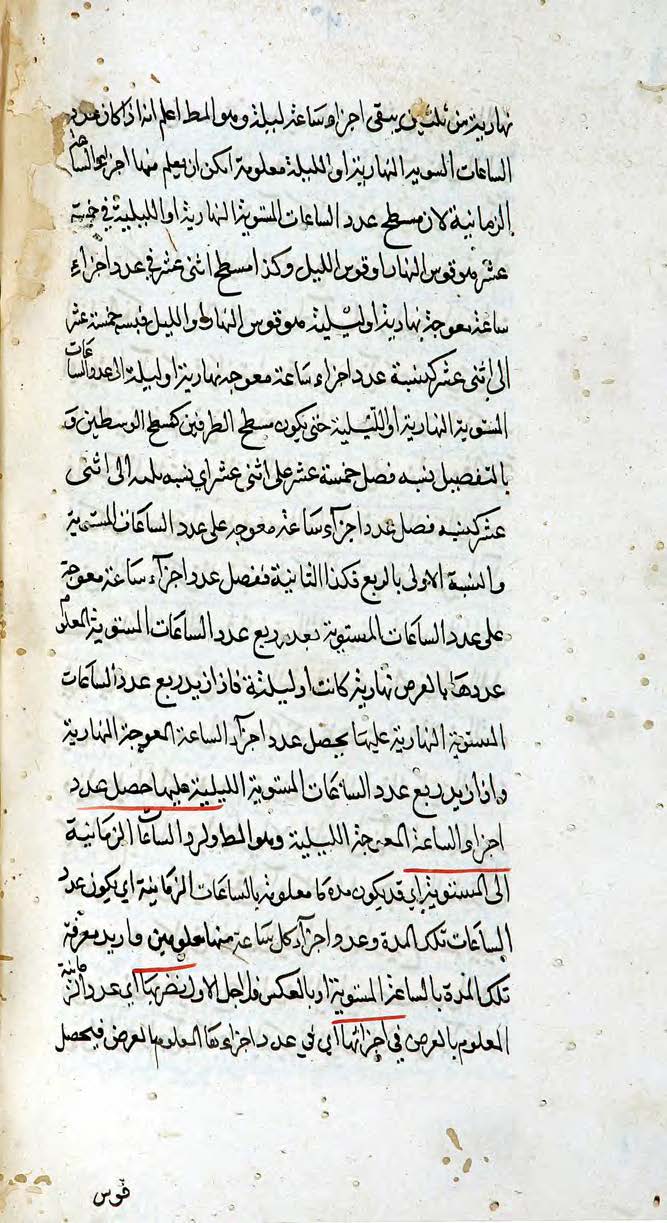 نهارية من ثلثين يبقى اجزاء ساعة ليلة وهو المط اعلم انه اذا كان عدد
الساعات السوية النهارية او الليلة معلومة امكن ان يعلم منها اجزاء الساعة
الزمانية لان مسطح عدد الساعات المستوية النهارية او الليلية في خمسة
عشر هو قوس النهار او قوس الليل وكذا مسطح اثنى عشر في عدد اجزاء
ساعة معوجة نهارية او ليلية هو قوس النهار والليل فنسبة خمسة عشر
الى اثنى عشر كنسبة عدد اجزاء ساعة معوجه نهارية او ليلة الى عدد الساعات
المستوية النهارية او الليلية حتى يكون مسطح الطرفين كمسطح الوسطين و
بالتفصيل نسبه فضل خمسة عشر على اثنى عشر اى نسبه ثلثه الى اثنى
عشر كنسبه فضل عدد اجزاء ساعة معوجه على عدد الساعات المستوية
والنسبة الاولى بالربع فكذا الثانية ففضل عدد اجزاء ساعة معوجة
على عدد الساعات المستوية بعدد ربع عدد الساعات المستوية المعلوم
عددها بالفرض نهارية كانت او ليلية فاذا زيد ربع عدد الساعات
المستوية النهارية عليها يحصل عدد اجزاء الساعة المعوجة النهارية
واذا زيد ربع عدد الساعات المستوية الليلية عليها حصل عدد
اجزاء الساعة المعوجة الليلية وهو المط ولرد الساعات الزمانية
الى المستوية اي قد يكون مدة ما معلومة بالساعات الزمانية اي يكون عدد
الساعات تلك المدة وعدد اجزاء كل ساعة منها معلومين واريد معرفة
تلك المدة بالساعة المستوية او بالعكس فلاجل الاول نضربها اي عدد الزمانية
المعلوم بالفرض في اجزائها اي في عدد اجزاءها المعلوم بالفرض فيحصل
قوس